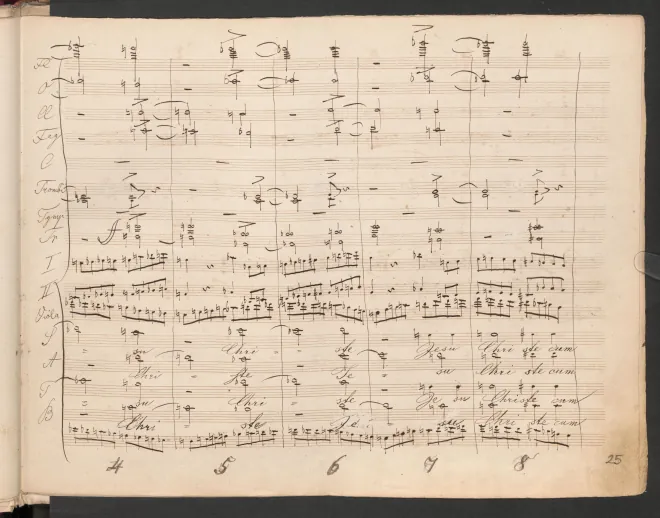 Fl
O
Cl
Fag
C
Tromb
Tymp
Tr
I
II
Viola
S
su Chri - ste Jesu Chri ste cum
A
Chri - ste Je su Chri ste cum
T
su Chri ste Je su Christe cum
B
Chri ste su Chri ste cum
4 5 6 7 8 25